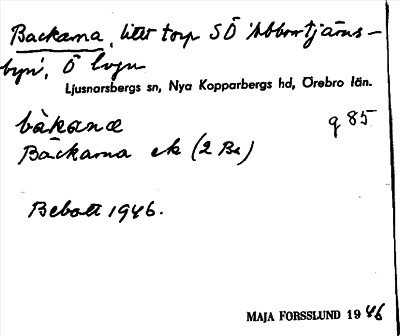 Backarna, litet torp SÖ 'Abborrtjärns-
byn', Ö
Ljusnarsbergs sn, Nya Kopparbergs hd, Örebro län.
bàkanæ g 85
Backarna ek (2 Be)
Bebott 1946.
MAJA FORSSLUND 1946